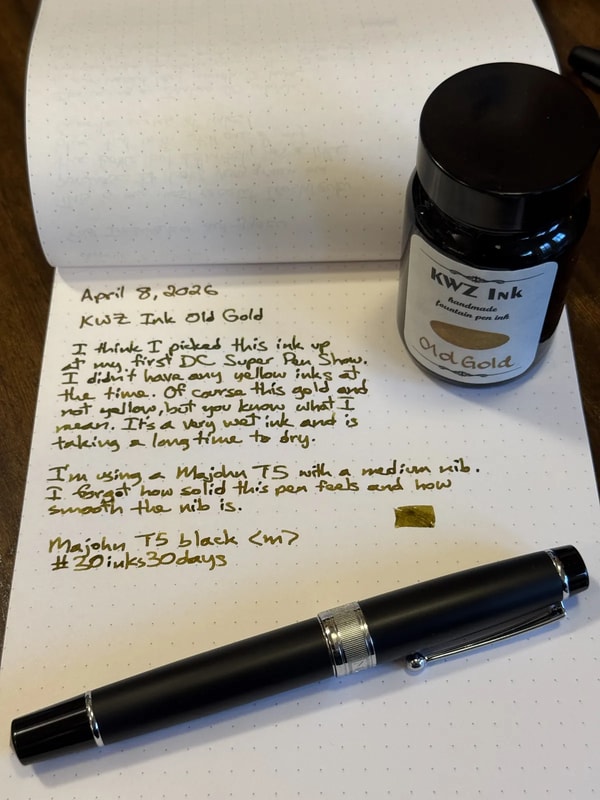 KWZ Ink
handmade
fountain pen ink
Old Gold
April 8, 2026
KWZ Ink Old Gold
I think I picked this ink up
at my first DC Super Pen Show.
I didn't have any yellow inks at
the time. Of course this gold and
not yellow, but you know what I
mean. It's a very wet ink and is
taking a long time to dry.
I'm using a Majohn T5 with a medium nib.
I forgot how solid this pen feels and how
smooth the nib is.
Majohn T5 black <m>
#30inks30days